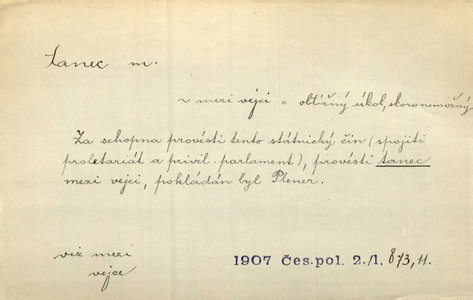 tanec m.
~ mezi vejci = obtížný úkol, skoro nemožný
Za schopna provésti tento státnický čin (spojiti
proletariát a privil. parlament), provésti tanec
mezi vejci, pokládán byl Plener.
viz mezi
vejce
1907 Čes. pol. 2./1. 873, 11.